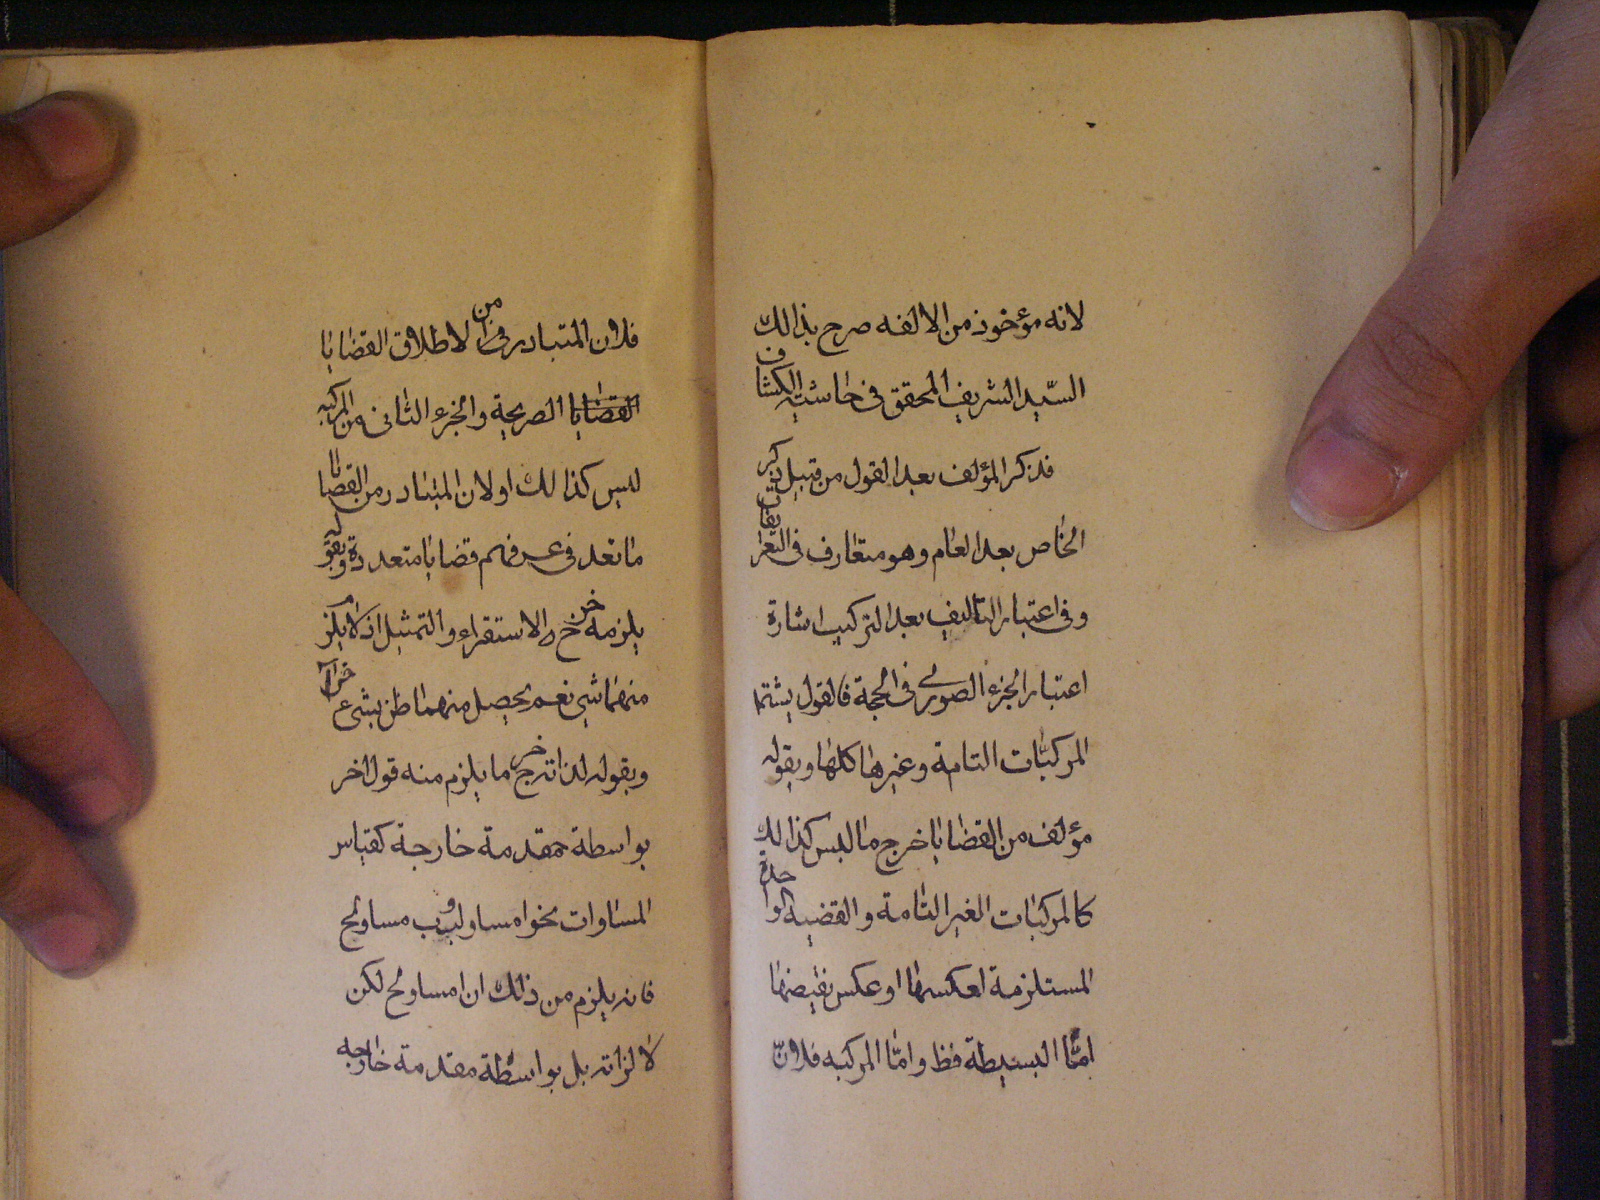 لانه مؤخوذ من الالفه صرح بذالك
السّيد الشريف المحقق فى حاشية الكشاف
فذكر المؤلف بعد القول من قبيل ذكر
الخاص بعد العام وهو متعارف فى التعريفات
وفى اعتبار التاليف بعد التركيب اشارة
اعتبار الجزء الصورى فى الحجة فالقول يشتمل
المركبات التامة وغيرها كلها وبقوله
مؤلف من القضايا خرج ما ليس كذالك
كالمركبات الغير التامة والقضية الواحدة
المستلزمة لعكسها او عكس نقيضها
امّا البسيطة فظ وامّا المركبه فلانّ
فلان المتبادر فى من الاطلاق القضايا
القضايا الصريحة والجزء الثانى من المركبه
ليس كذالك او لان المتبادر من القضايا
ما تعد فى عرفهم قضايا متعددة وبقوله
يلزمه خرج الاستقراء والتمثيل اذ لا يلزم
منهما شئ نعم يحصل منهما ظن بشئ اخر
وبقوله لذاته خرج ما يلزم منه قول اخر
بواسطة مقدمة خارجة كقياس
المساوات نحو ا مساو لب وب مساو لج
فانه يلزم من ذلك ان ا مساو لج لكن
لا لذاته بل بواسطة مقدمة خارجه